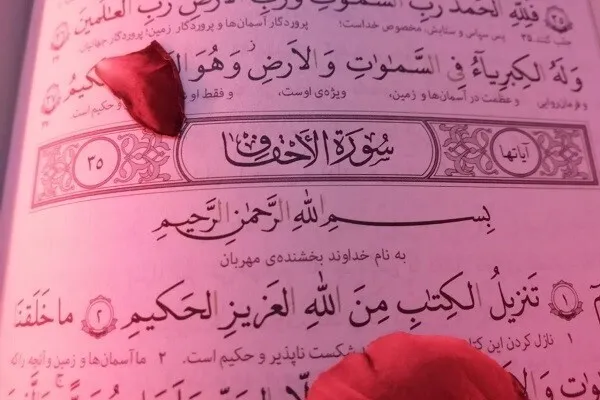 فَلِلّٰهِ الحَمدُ رَبِّ السَّمٰوٰتِ وَرَبِّ الاَرضِ رَبِّ العٰلَمينَ
جلب کنند. ۳۵ پس سپاس و ستایش، مخصوص خداست؛ پروردگار آسمان‌ها و پروردگار زمین؛ پروردگار جهانیان
وَلَهُ الكِبرِياءُ فِي السَّمٰوٰتِ وَ الاَرضِ وَهُوَ الحَكيمُ
و فرمان‌روایی و عظمت در آسمان‌ها و زمین، ویژه‌ی اوست، و فقط او و حکیم است.
آیاتها سُورَةُ الأَحْقافِ ۳۵
بِسمِ اللّٰهِ الرَّحمٰنِ الرَّحيمِ
به نام خداوند بخشنده‌ی مهربان
۱ تَنزيلُ الكِتٰبِ مِنَ اللّٰهِ العَزيزِ الحَكيمِ ۲ ما خَلَقنَا
۱ نازل کردن این شکست ناپذیر و حکیم است. ۲ ما آسمان‌ها و زمین و آنچه را که